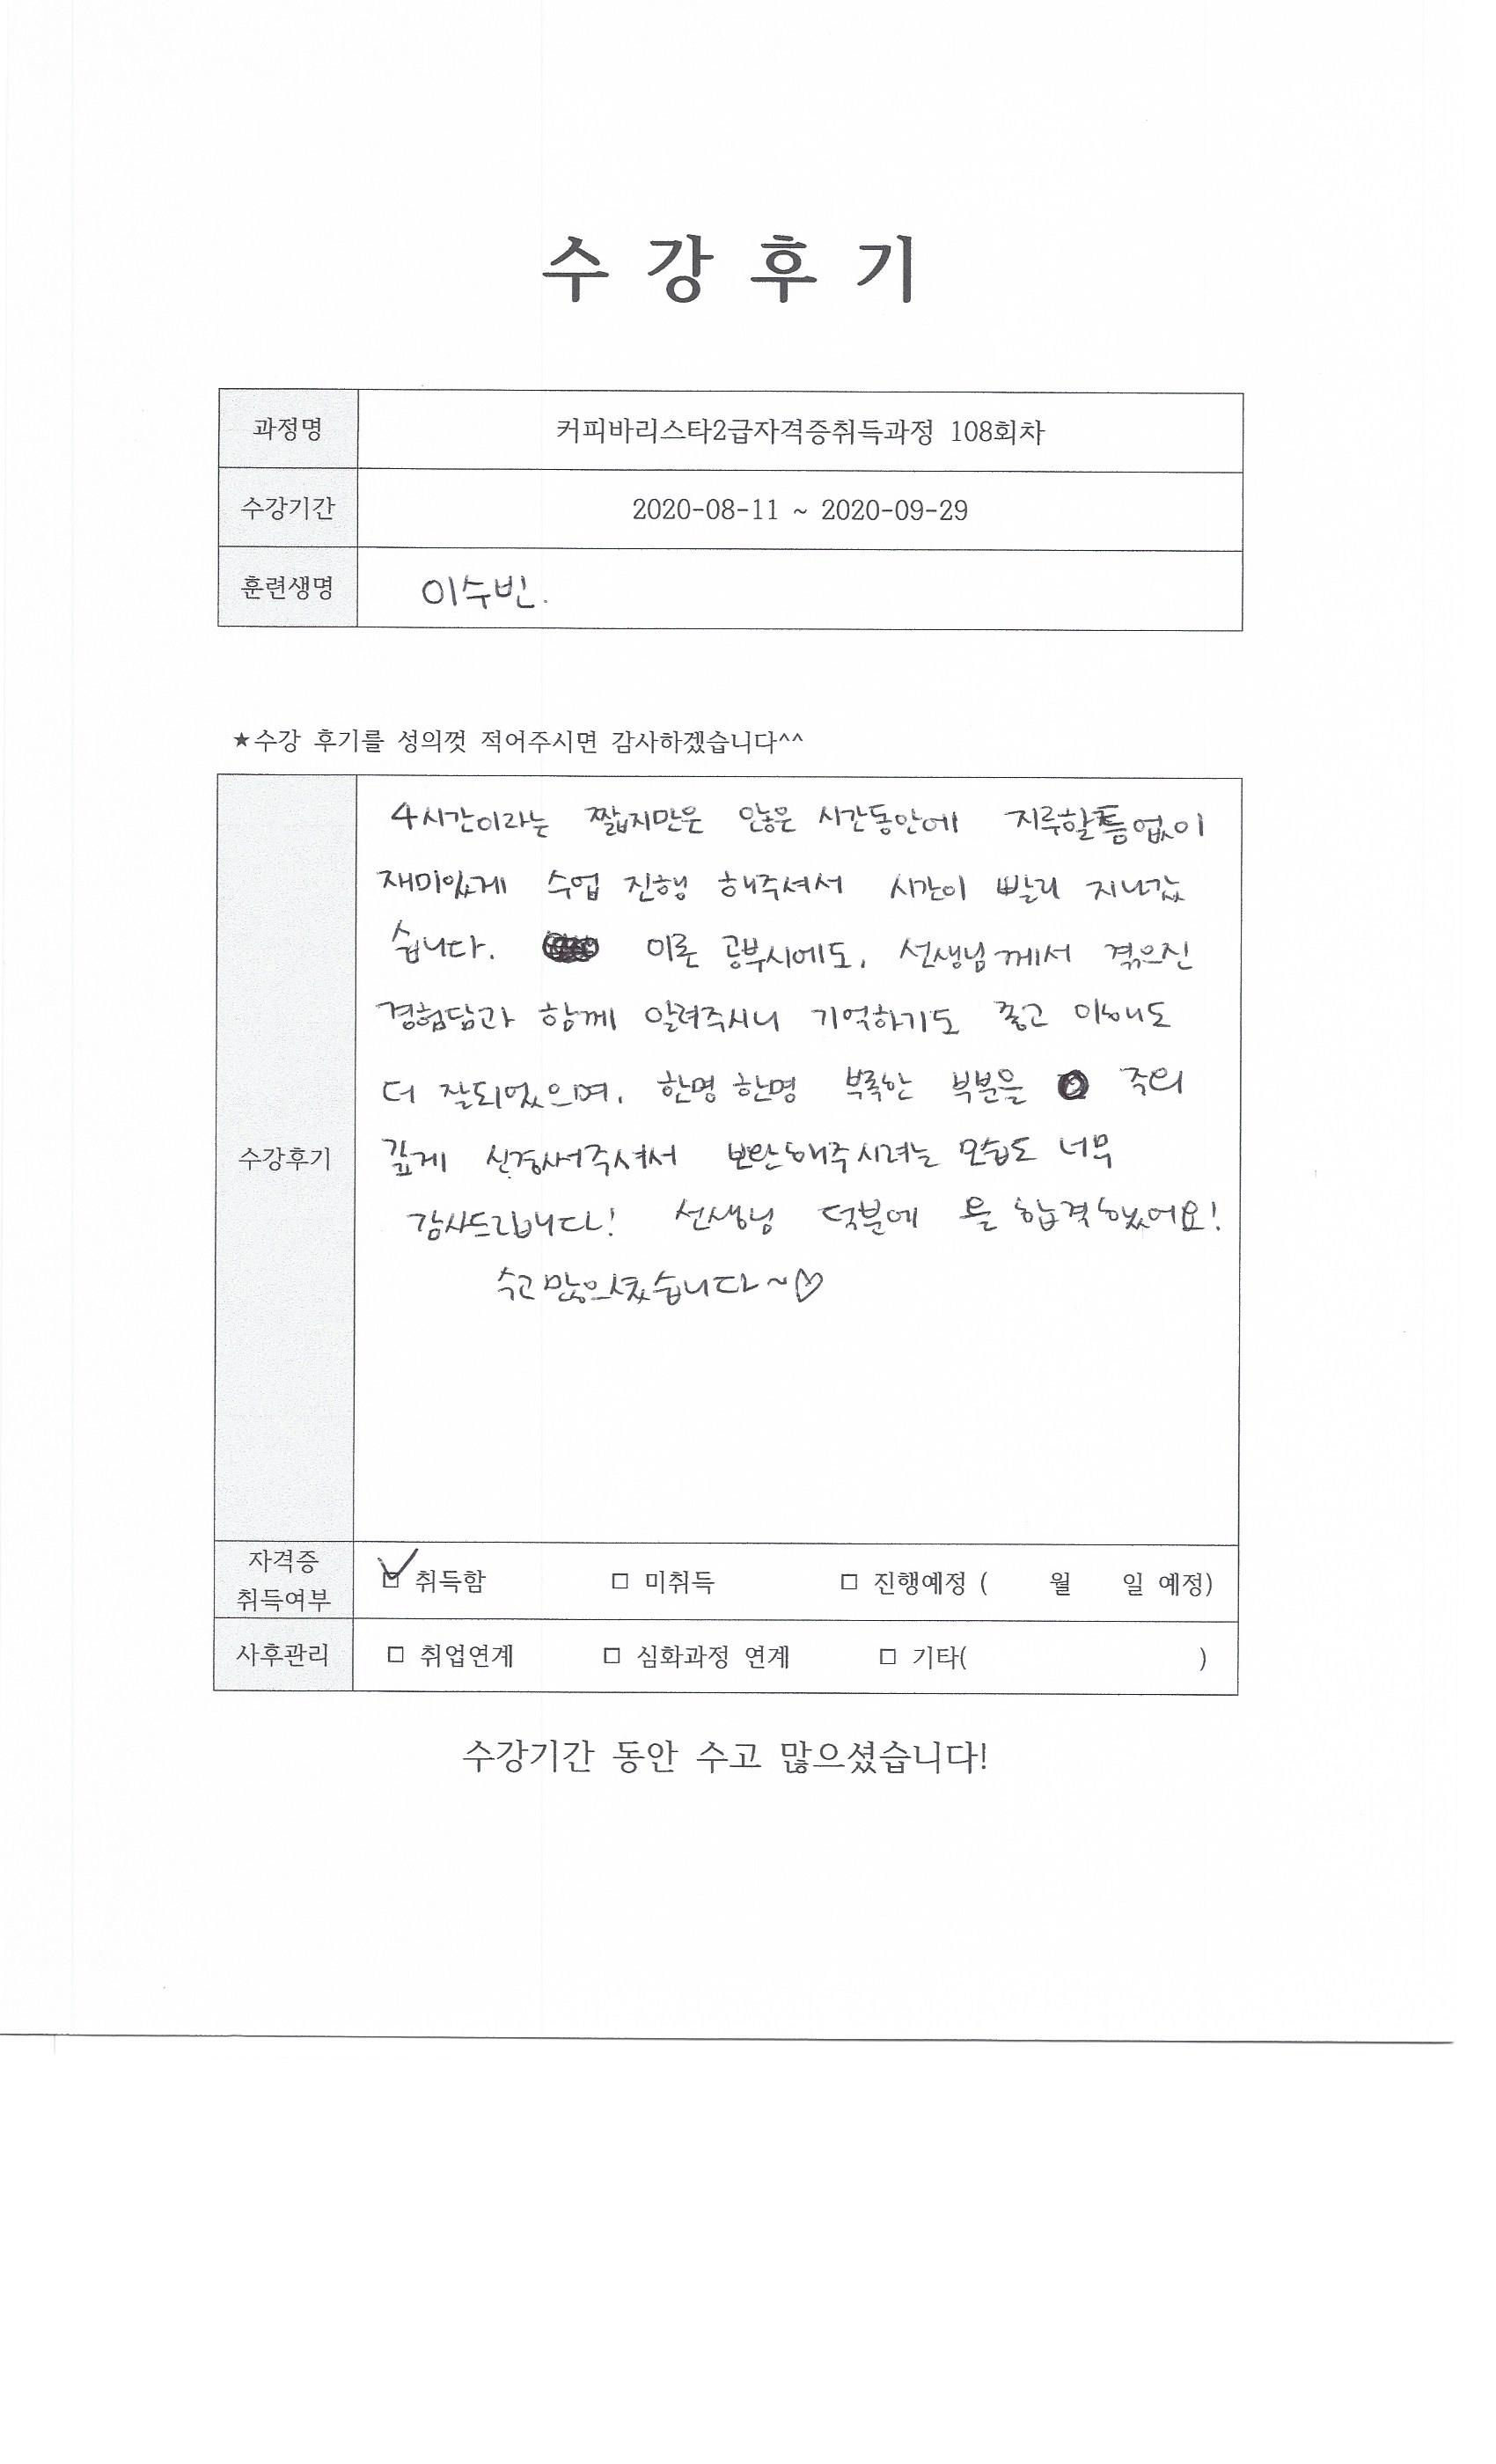 수 강 후 기
과정명 커피바리스타2급자격증취득과정 108회차
수강기간 2020-08-11 ~ 2020-09-29
훈련생명 이수빈.
★수강 후기를 성의껏 적어주시면 감사하겠습니다^^
4시간이라는 짧지만은 않은 시간동안에 지루할틈없이
재미있게 수업 진행 해주셔서 시간이 빨리 지나갔
습니다. 이론 공부시에도, 선생님께서 겪으신
경험담과 함께 알려주시니 기억하기도 좋고 이해도
더 잘되었으며, 한명 한명 부족한 부분을 주의
수강후기 깊게 신경써주셔서 보완해주시려는 모습도 너무
감사드립니다! 선생님 덕분에 합격했어요!
수고 많으셨습니다~♡
자격증
취득여부 ☑ 취득함 □ 미취득 □ 진행예정 ( 월 일 예정)
사후관리 □ 취업연계 □ 심화과정 연계 □ 기타( )
수강기간 동안 수고 많으셨습니다!